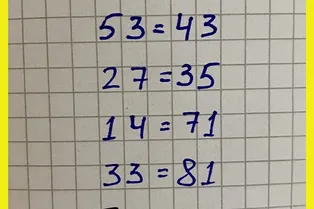 53=43
27=35
14=71
33=81